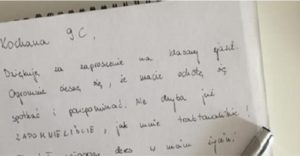 Kochana 9C,
Dziękuję za zaproszenie na klasowy zjazd.
Ogromnie cieszę się, że macie ochotę się
spotkać i powspominać. Ale chyba już
ZAPOMNIELIŚCIE, jak mnie traktowaliście!
czas w moim życiu.